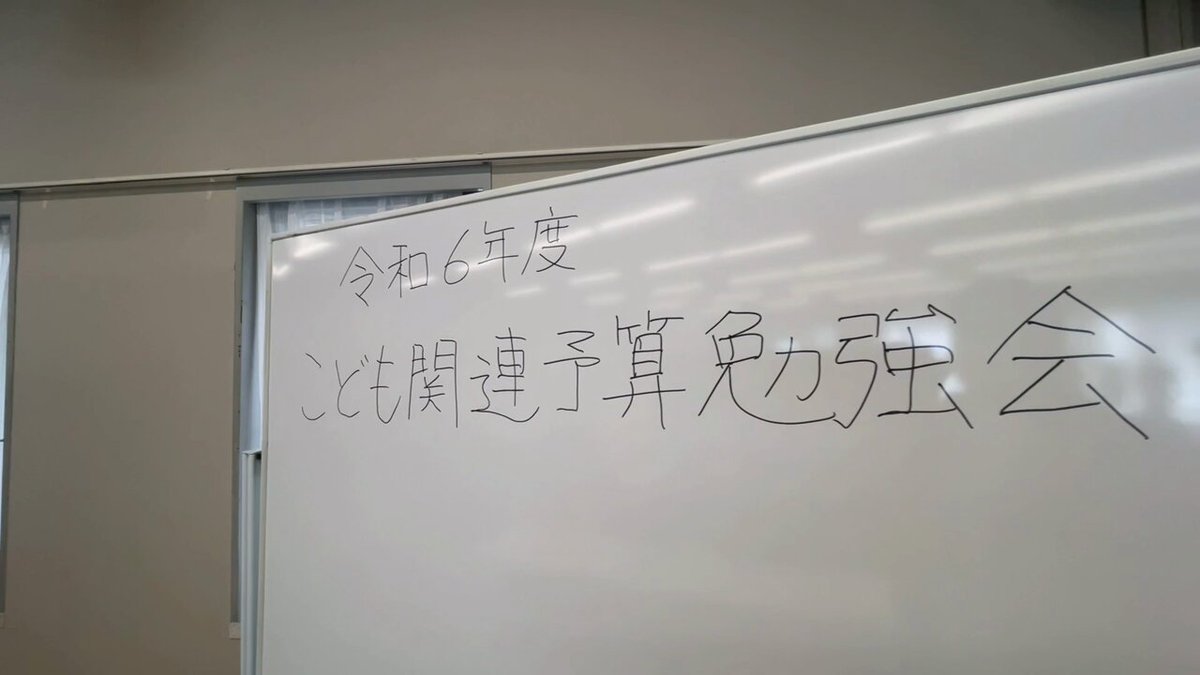 令和6年度
こども関連予算勉強会